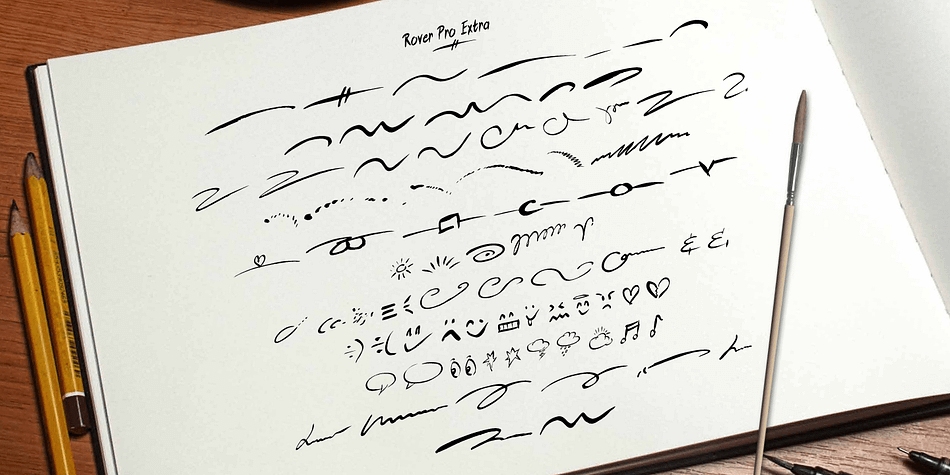 Rover Pro Extra
& &
:) :(